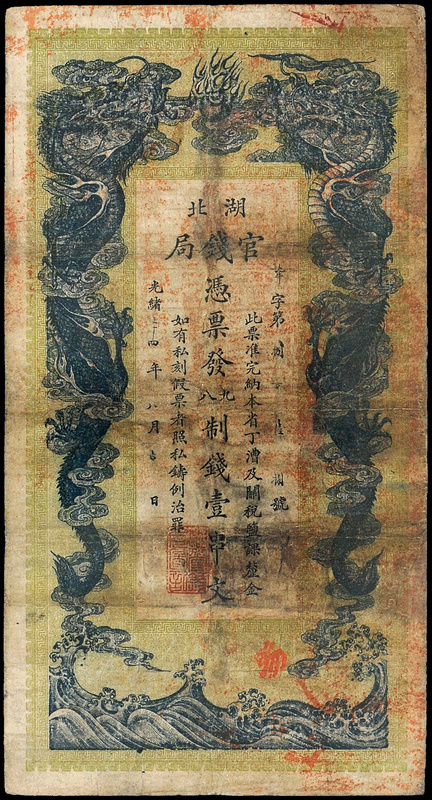 湖北
官錢局
字第 號
此票准完納本省丁漕及關稅鹽課釐金
憑票發九八制錢壹串文
如有私刻假票者照私鑄例治罪
光緒 四年八月 日